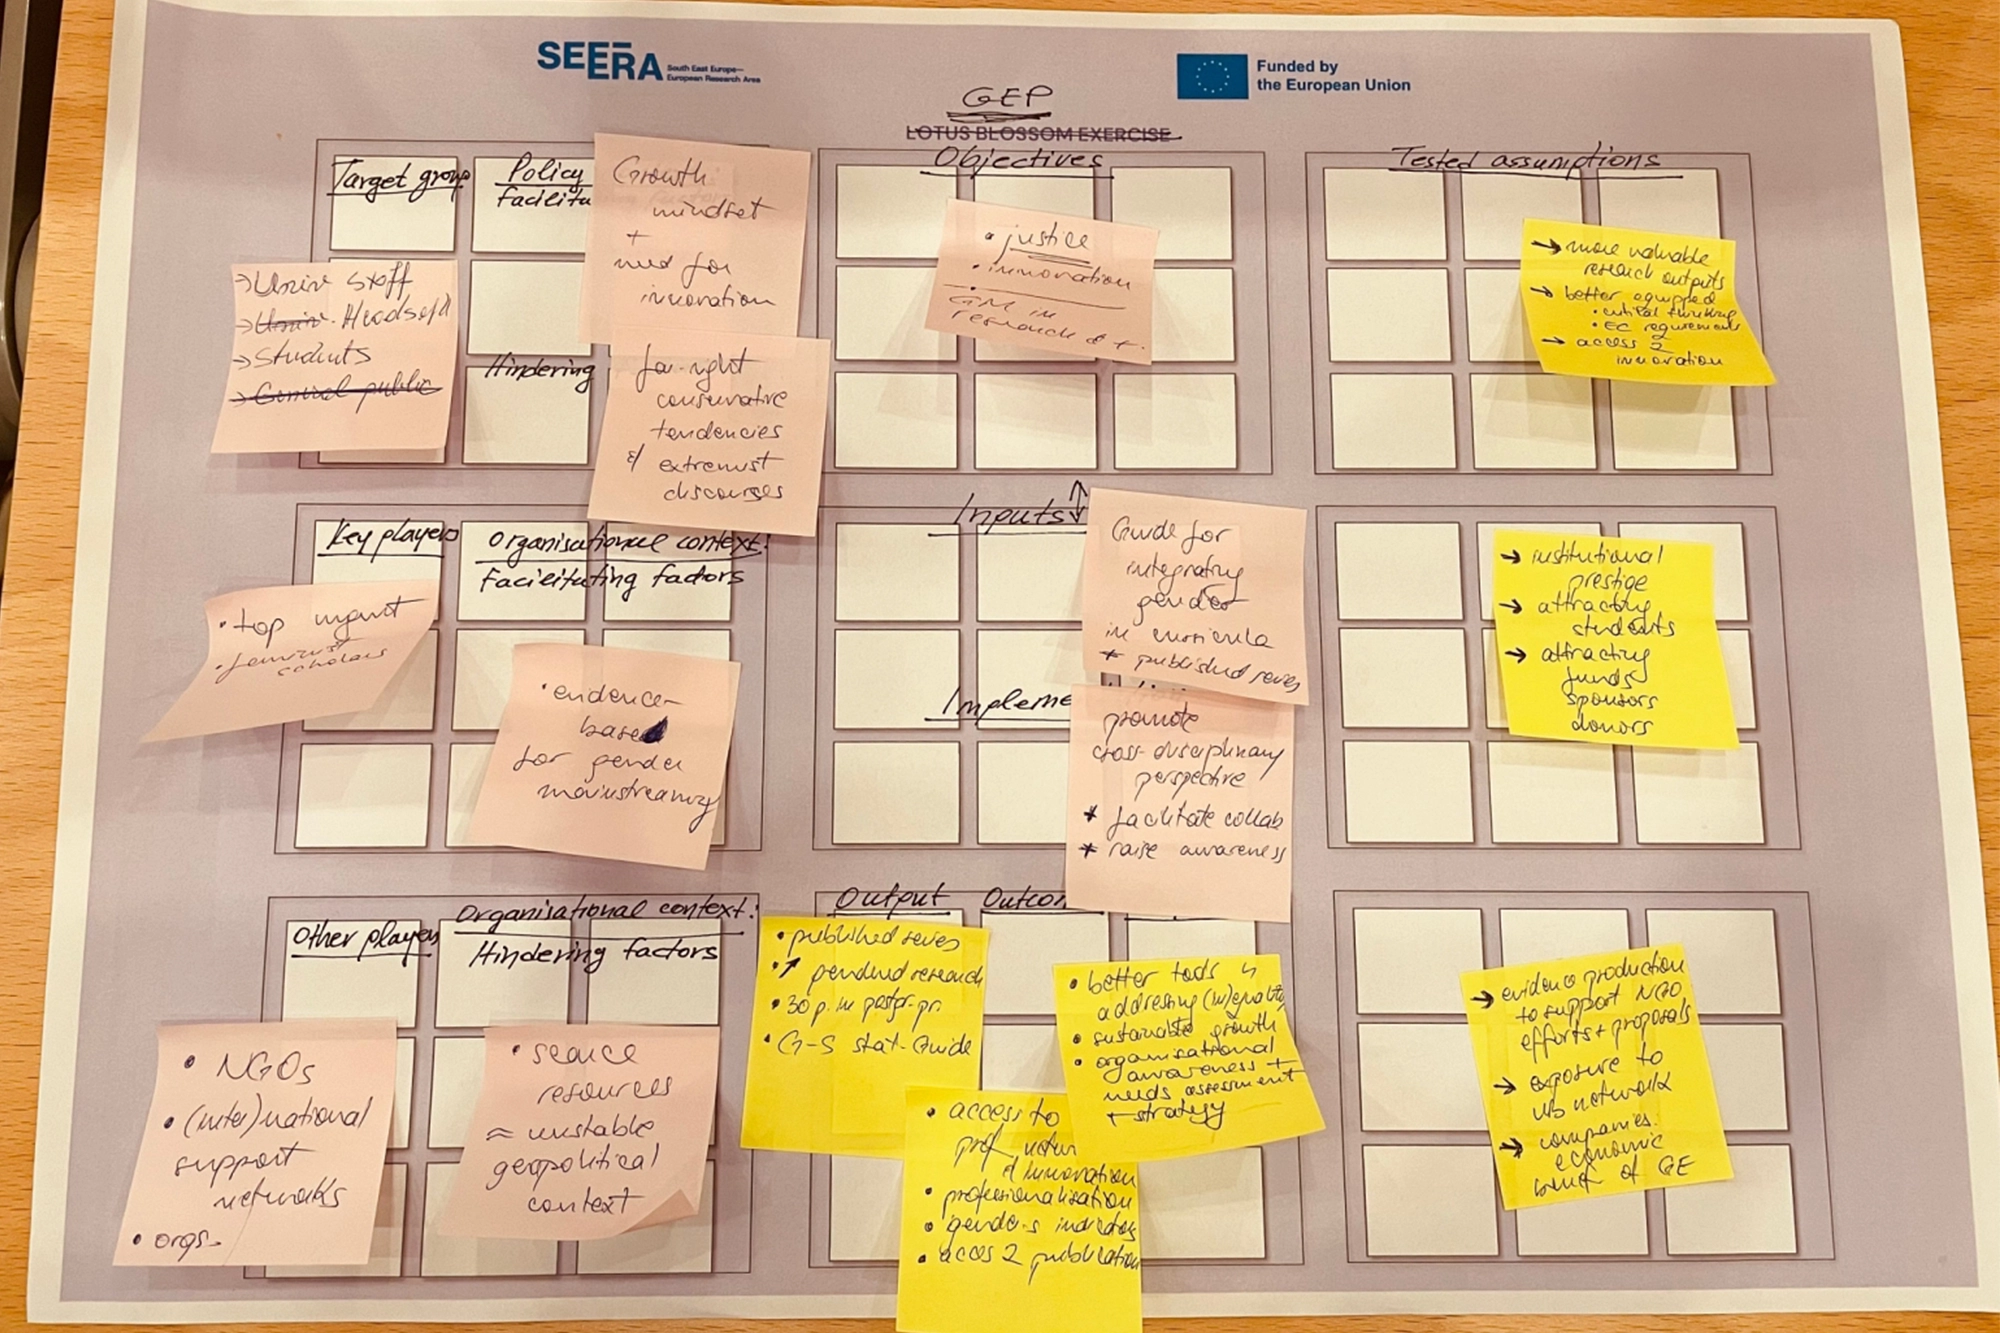 SEERA South East Europe—
European Research Area
Funded by
the European Union
GEP
LOTUS BLOSSOM EXERCISE
Target group
→ Univ staff
→ Univ. Heads of
→ Students
→ General public
Policy
facilita
Growth
mindset
+
need for
innovation
Hindering
far-right
conservative
tendencies
& extremist
discourses
Objectives
• justice
• innovation
• GM in
research & t.
Tested assumptions
→ more valuable
research outputs
→ better equipped
• critical thinking
• EC requirements
→ access 2
innovation
Key players
• top mgmt
• feminist
scholars
Organisational context:
Facilitating factors
• evidence-
based
for gender
mainstreaming
Inputs
Guide for
integrating
gender
in curricula
+ published series
Impleme
promote
cross-disciplinary
perspective
* facilitate collab
* raise awareness
→ institutional
prestige
→ attracting
students
→ attracting
funds
sponsors
donors
Other players
• NGOs
• (inter)national
support
networks
• orgs.
Organisational context:
Hindering factors
• scarce
resources
≈ unstable
geopolitical
context
Output
• published series
• ↗ research
• 30 p. in postgr. pr.
• G-S stat. Guide
Outcom
• better tools 4
addressing (in)equality
• sustainable growth
• organisational
awareness +
needs assessment
+ strategy
• access to
prof. networ
& innovation
• professionalisation
• gender-s indicators
• acces 2 publication
→ evidence production
to support NGO
efforts + proposals
→ exposure to
network
→ companies:
economic
of GE